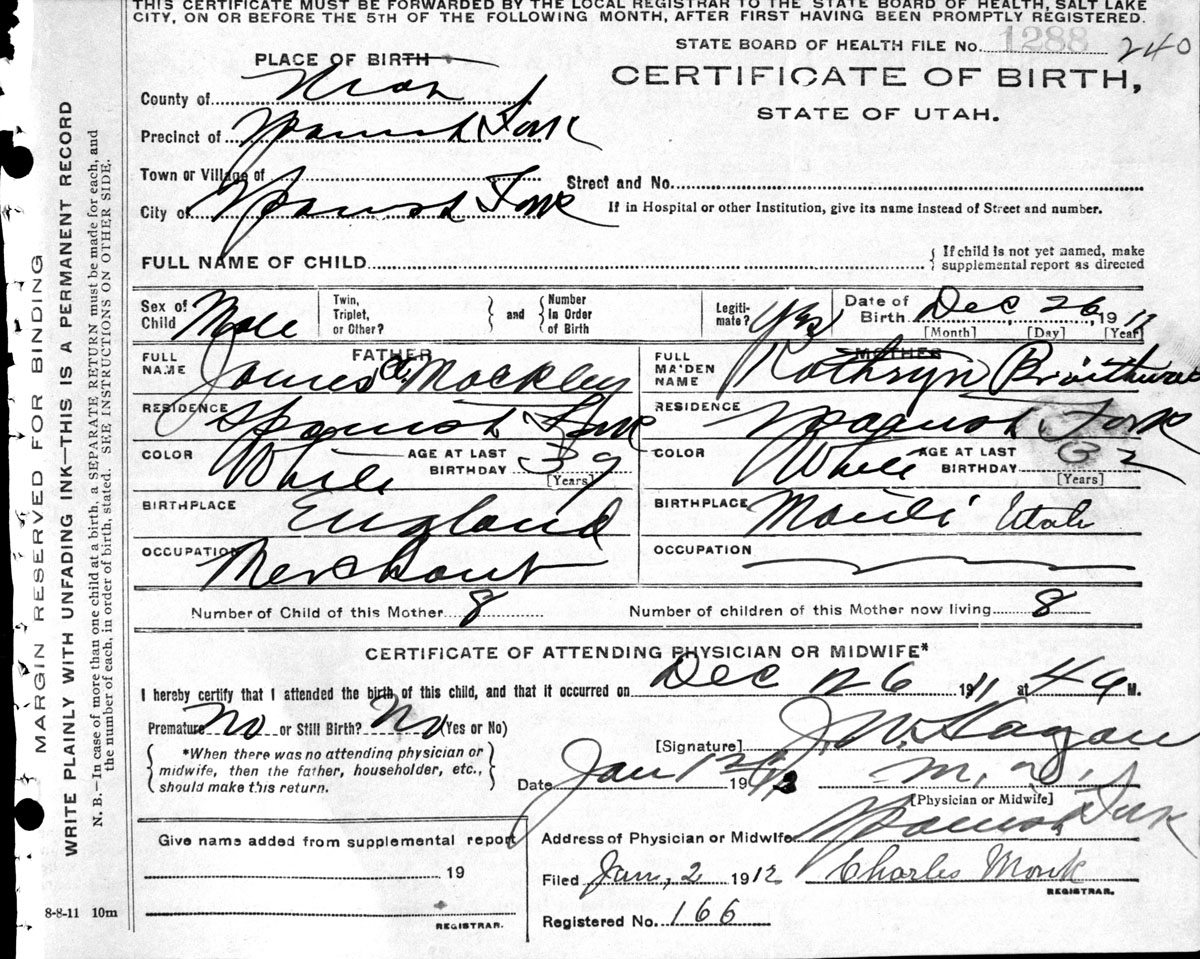 THIS CERTIFICATE MUST BE FORWARDED BY THE LOCAL REGISTRAR TO THE STATE BOARD OF HEALTH, SALT LAKE
CITY, ON OR BEFORE THE 5TH OF THE FOLLOWING MONTH, AFTER FIRST HAVING BEEN PROMPTLY REGISTERED.
STATE BOARD OF HEALTH FILE No. 1288 240
PLACE OF BIRTH
CERTIFICATE OF BIRTH,
STATE OF UTAH.
County of
Precinct of Spanish Fork
Town or Village of
Street and No.
City of Spanish Fork
If in Hospital or other Institution, give its name instead of Street and number.
FULL NAME OF CHILD
{ If child is not yet named, make
supplemental report as directed
Sex of Child Male
Twin, Triplet, or Other? } and { Number In Order of Birth
Legiti-mate? Yes
Date of Birth Dec 26, 1911
[Month] [Day] [Year]
FATHER
FULL NAME James A. Mockley
RESIDENCE Spanish Fork
COLOR White
AGE AT LAST BIRTHDAY 39
[Years]
BIRTHPLACE England
OCCUPATION Merchant
MOTHER
FULL MAIDEN NAME Kathryn
RESIDENCE Spanish Fork
COLOR White
AGE AT LAST BIRTHDAY 32
[Years]
BIRTHPLACE Manti Utah
OCCUPATION
Number of Child of this Mother 8
Number of children of this Mother now living 8
CERTIFICATE OF ATTENDING PHYSICIAN OR MIDWIFE*
I hereby certify that I attended the birth of this child, and that it occurred on Dec 26 1911 at 4 M.
Premature No or Still Birth? No (Yes or No)
{ *When there was no attending physician or
midwife, then the father, householder, etc.,
should make this return. }
[Signature] J. W. Hagan
Date Jan 19
M. D.
[Physician or Midwife]
Address of Physician or Midwife Spanish Fork
Give name added from supplemental report
19
REGISTRAR.
Filed Jan, 2 1912
Charles Monk
REGISTRAR.
Registered No. 166
8-8-11 10m
MARGIN RESERVED FOR BINDING
WRITE PLAINLY WITH UNFADING INK—THIS IS A PERMANENT RECORD
N. B.—In case of more than one child at a birth, a SEPARATE RETURN must be made for each, and
the number of each, in order of birth, stated. SEE INSTRUCTIONS ON OTHER SIDE.